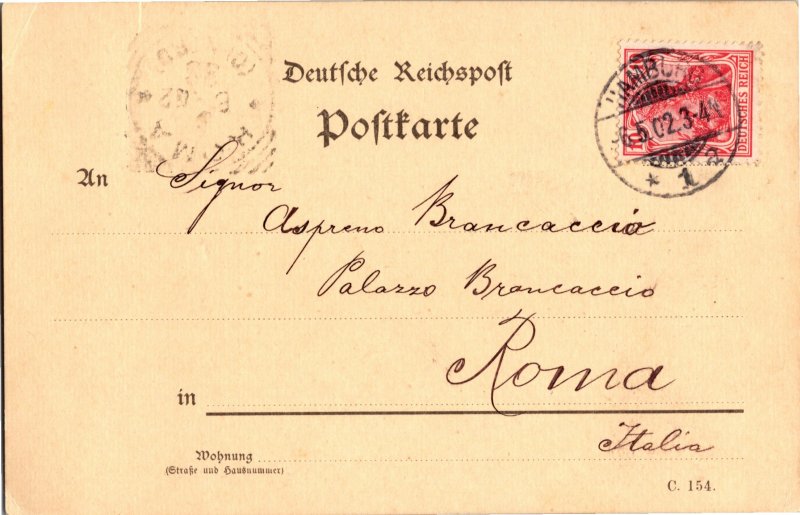 Deutsche Reichspost
Postkarte
HAMBURG
6.5.02.3-4N.
* 1 a
DEUTSCHES REICH
10
An Signor
Aspreno Brancaccio
Palazzo Brancaccio
in Roma
Italia
Wohnung
(Straße und Hausnummer)
C. 154.